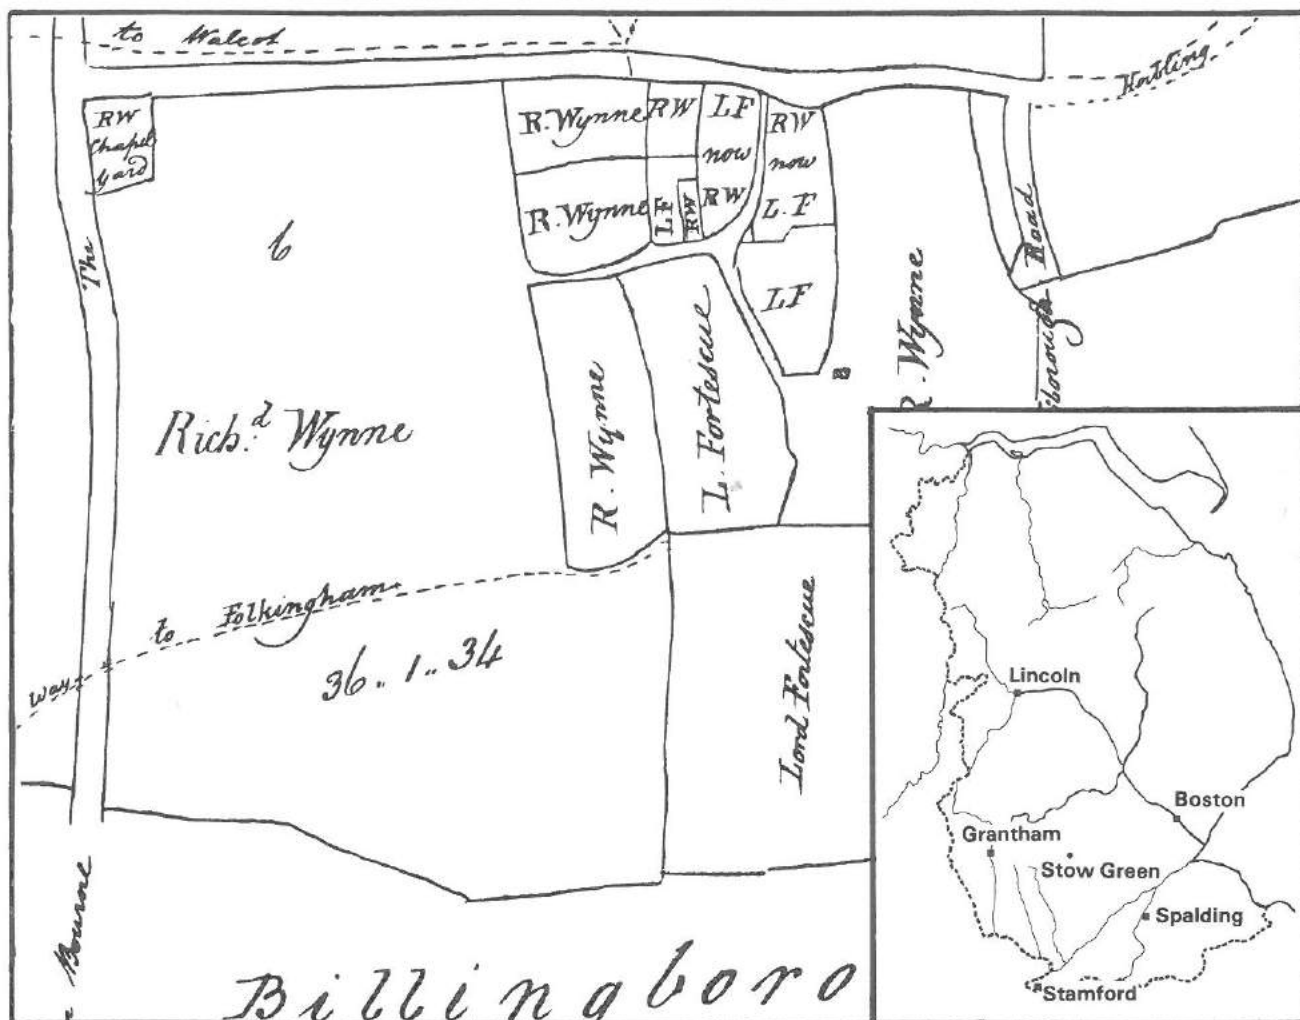 to Walcot
Horbling
RW
Chapel
Yard
R. Wynne
RW
LF
now
RW
RW
now
L. F
R. Wynne
LF
RW
LF
The
6
Road
R. Wynne
Rich.d Wynne
R. Wynne
L. Fortescue
way
to Folkingham
36.. 1.. 34
Lord Fortescue
Bourne
Billingboro
Lincoln
Boston
Grantham
Stow Green
Spalding
Stamford